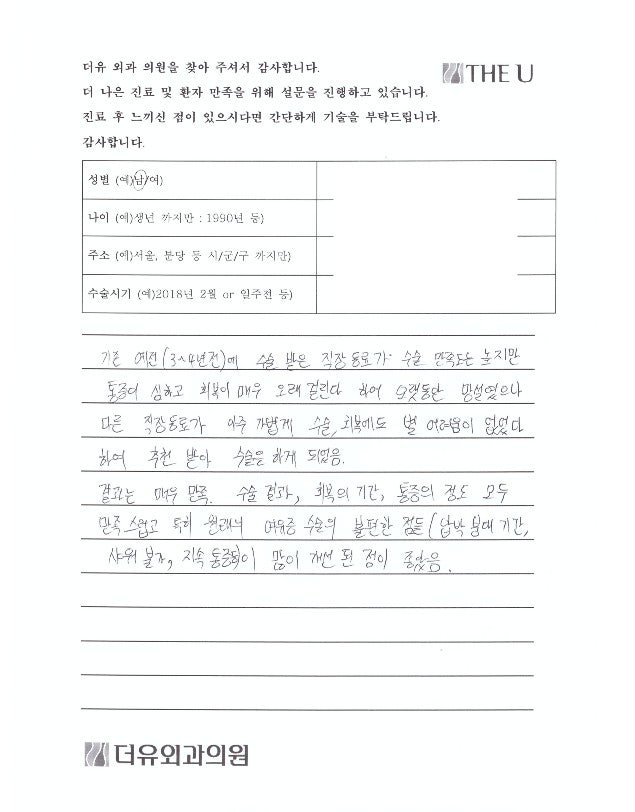 더유 외과 의원을 찾아 주셔서 감사합니다.
THE U
더 나은 진료 및 환자 만족을 위해 설문을 진행하고 있습니다.
진료 후 느끼신 점이 있으시다면 간단하게 기술을 부탁드립니다.
감사합니다.
성별 (예)남/여)
나이 (예)생년 까지만 : 1990년 등)
주소 (예)서울, 분당 등 시/군/구 까지만)
수술시기 (예)2018년 2월 or 일주전 등)
기존 예전(3~4년전)에 수술 받은 직장동료가 수술 만족도는 높지만
통증이 심하고 회복이 매우 오래 걸린다 하여 오랫동안 망설였으나
다른 직장동료가 아주 가볍게 수술, 회복에도 별 어려움이 없었다
하여 추천 받아 수술을 하게 되었음.
결과는 매우 만족. 수술 결과, 회복의 기간, 통증의 정도 모두
만족스럽고 특히 원래의 여유증 수술의 불편한 점들(압박 붕대 기간,
샤워 불가, 지속 통증)이 많이 개선 된 점이 좋았음.
더유외과의원